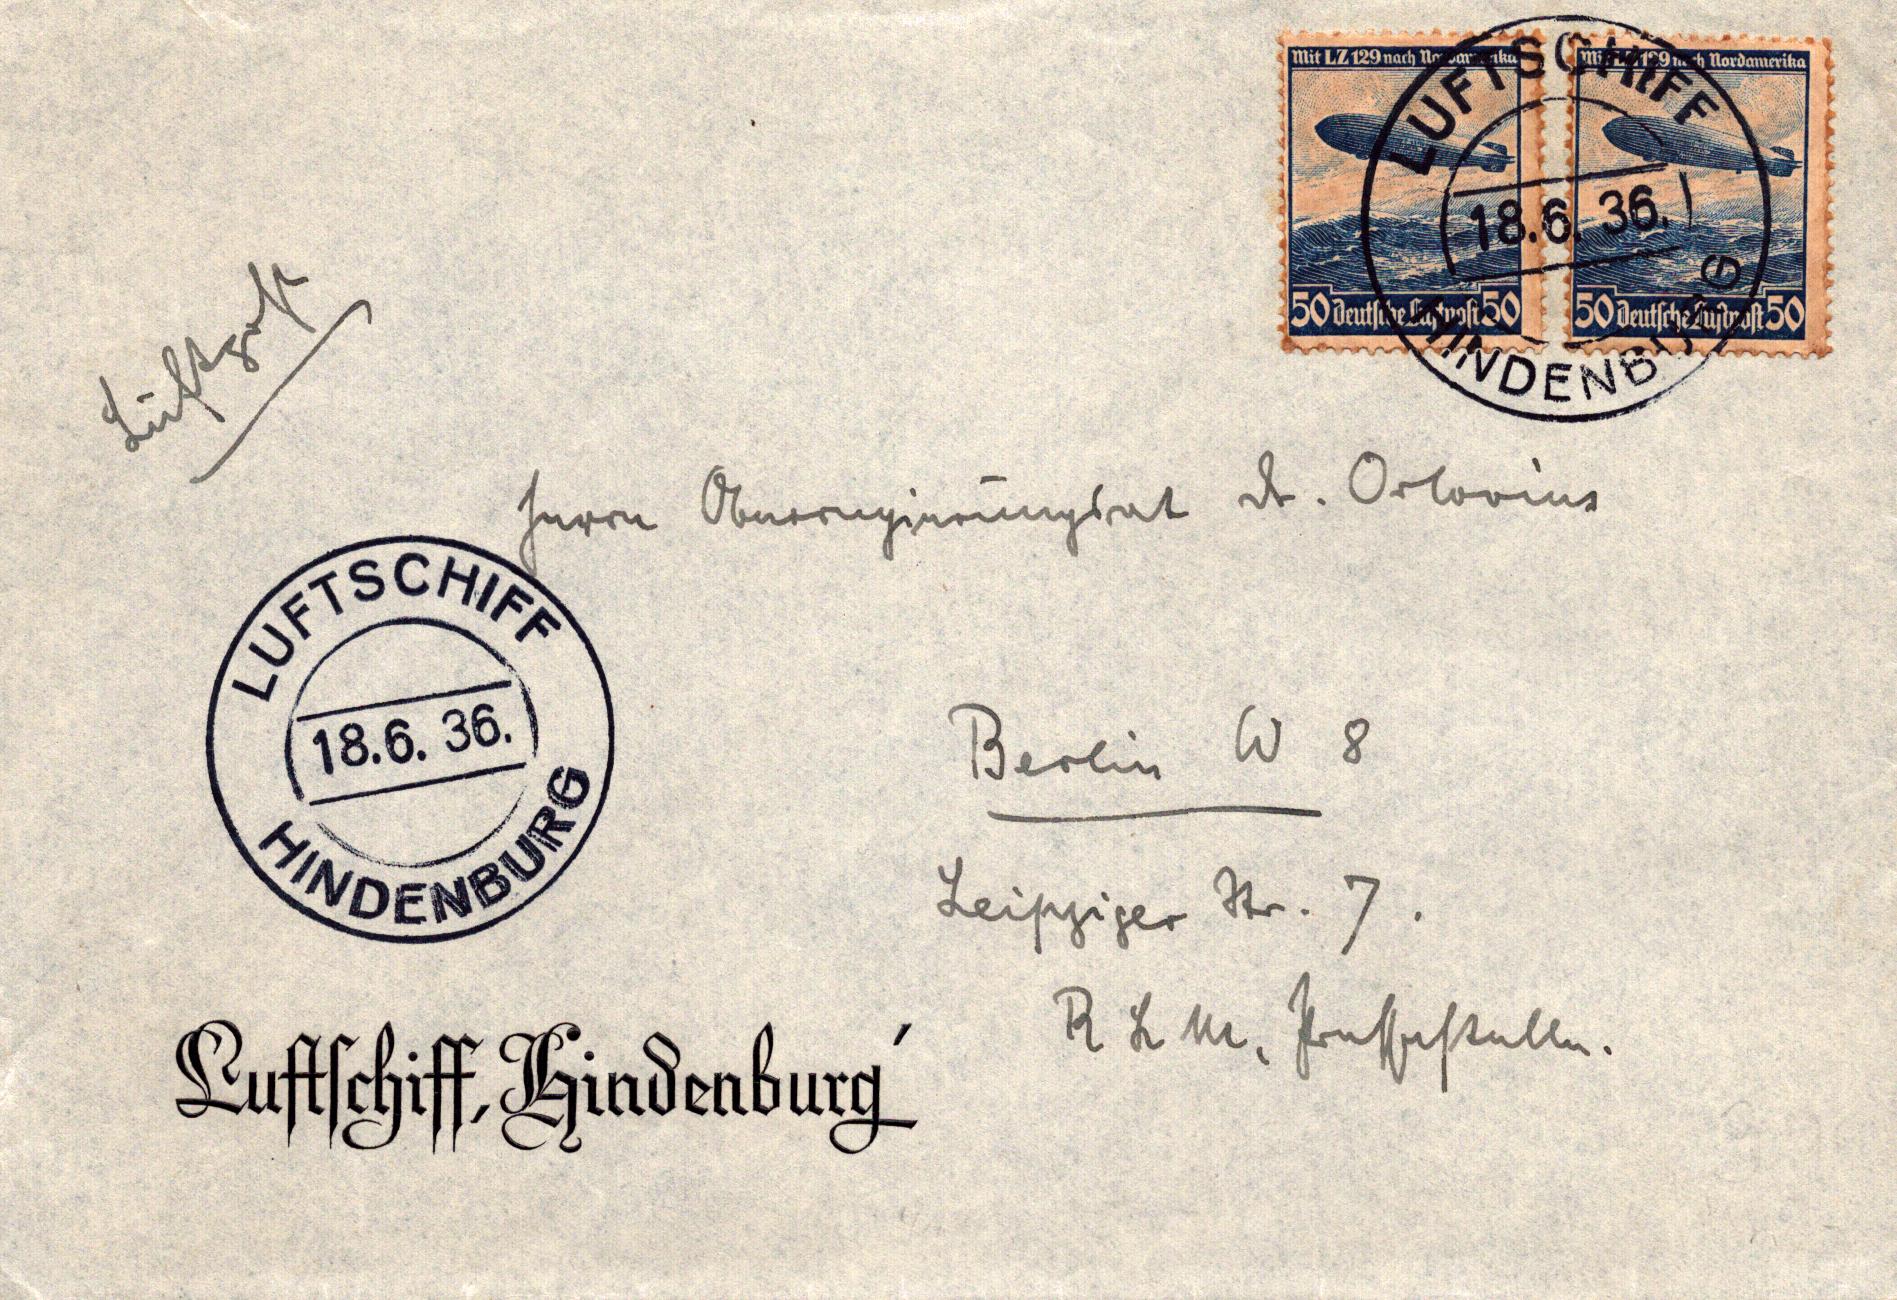 Mit LZ 129 nach Nordamerika
50 Deutsche Luftpost 50
Mit LZ 129 nach Nordamerika
50 Deutsche Luftpost 50
LUFTSCHIFF
18.6.36.
HINDENBURG
Luftpost
Herrn Oberregierungsrat Dr. Orlovius
LUFTSCHIFF
18.6.36.
HINDENBURG
Berlin W 8
Leipziger Str. 7.
R L M, Pressestelle.
Luftschiff „Hindenburg"